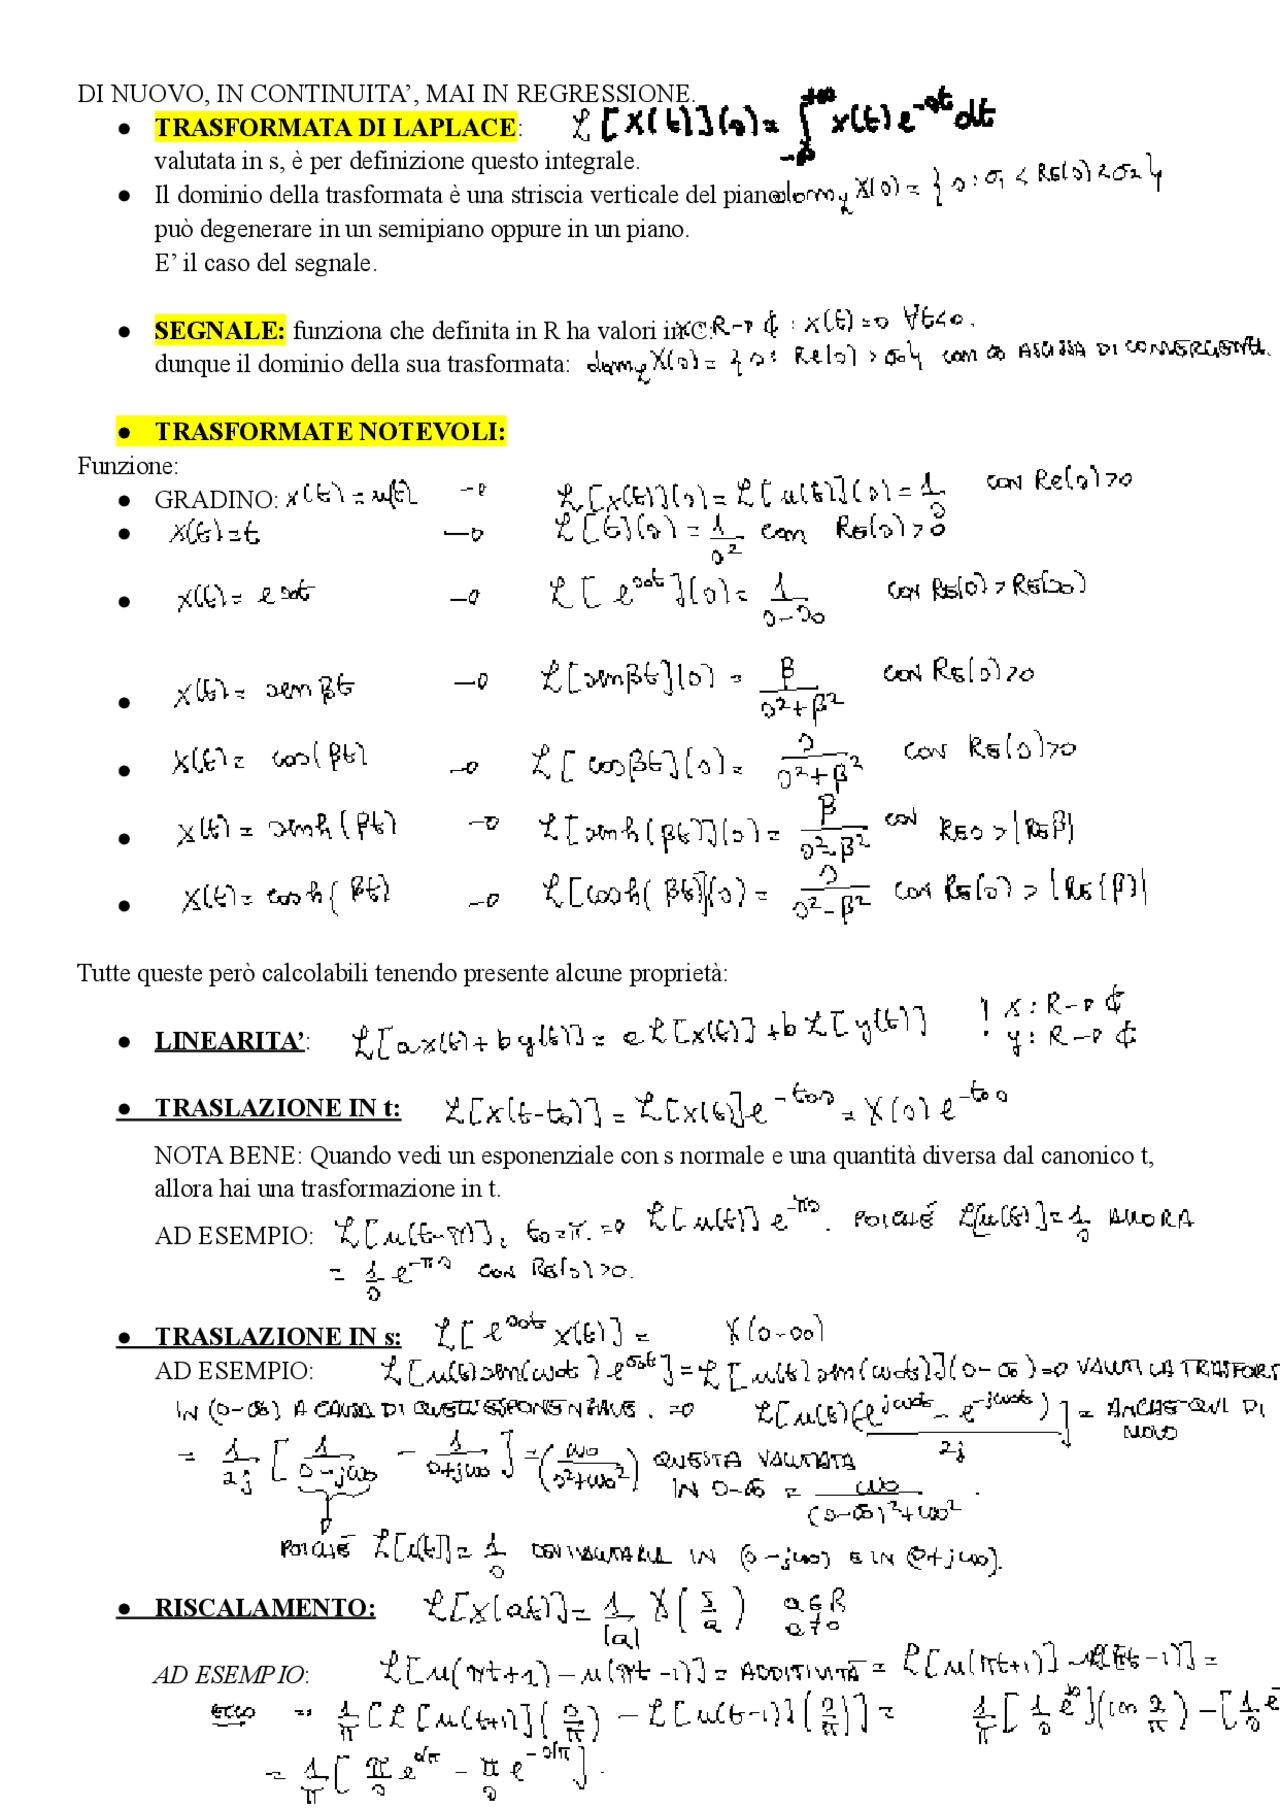 DI NUOVO, IN CONTINUITA', MAI IN REGRESSIONE.
● TRASFORMATA DI LAPLACE: ℒ[x(t)](s) = ∫_{-∞}^{+∞} x(t) e^{-st} dt
valutata in s, è per definizione questo integrale.
● Il dominio della trasformata è una striscia verticale del piano dom_ℒ X(s) = { s : σ₁ < Re(s) < σ₂ }
può degenerare in un semipiano oppure in un piano.
E' il caso del segnale.
● SEGNALE: funziona che definita in R ha valori in C: x: R → ℂ : x(t)=0 ∀t<0.
dunque il dominio della sua trasformata: dom_ℒ X(s) = { s : Re(s) > σ₀ } con σ₀ ASCISSA DI CONVERGENZA.
● TRASFORMATE NOTEVOLI:
Funzione:
● GRADINO: x(t) = u(t) → ℒ[x(t)](s) = ℒ[u(t)](s) = 1/s con Re(s)>0
● x(t)=t → ℒ[t](s) = 1/s² con Re(s)>0
● x(t) = e^{s₀t} → ℒ[e^{s₀t}](s) = 1/(s-s₀) con Re(s) > Re(s₀)
● x(t) = sen βt → ℒ[sen βt](s) = β/(s²+β²) con Re(s)>0
● x(t) = cos(βt) → ℒ[cos βt](s) = s/(s²+β²) con Re(s)>0
● x(t) = senh(βt) → ℒ[senh(βt)](s) = β/(s²-β²) con Re s > |Re β|
● x(t) = cosh(βt) → ℒ[cosh(βt)](s) = s/(s²-β²) con Re(s) > |Re(β)|
Tutte queste però calcolabili tenendo presente alcune proprietà:
● LINEARITA': ℒ[ax(t)+by(t)] = aℒ[x(t)]+bℒ[y(t)] ! x: R → ℂ
y: R → ℂ
● TRASLAZIONE IN t: ℒ[x(t-t₀)] = ℒ[x(t)]e^{-t₀s} = X(s)e^{-t₀s}
NOTA BENE: Quando vedi un esponenziale con s normale e una quantità diversa dal canonico t,
allora hai una trasformazione in t.
AD ESEMPIO: ℒ[u(t-π)], t₀=π. → ℒ[u(t)] e^{-πs}. POICHÉ ℒ[u(t)]=1/s ALLORA
= 1/s e^{-πs} con Re(s)>0.
● TRASLAZIONE IN s: ℒ[e^{s₀t} x(t)] = X(s-s₀)
AD ESEMPIO: ℒ[u(t)sen(ω₀t) e^{σ₀t}] = ℒ[u(t)sen(ω₀t)](s-σ₀) → VALUTI LA TRASFOR
IN (s-σ₀) A CAUSA DI QUELL'ESPONENZIALE. → ℒ[u(t)(e^{jω₀t} - e^{-jω₀t})/2j] = ANCHE QUI DI NUOVO
= 1/2j [1/(s-jω₀) - 1/(s+jω₀)] = (ω₀/(s²+ω₀²)) QUESTA VALUTATA
IN s-σ₀ = ω₀/((s-σ₀)²+ω₀²).
POICHÉ ℒ[u(t)] = 1/s DEVI VALUTARLE IN (s-jω₀) E IN (s+jω₀).
● RISCALAMENTO: ℒ[x(at)] = 1/|a| X(s/a) a∈R a≠0
AD ESEMPIO: ℒ[u(πt+1) - u(πt-1)] = ADDITIVITÀ = ℒ[u(πt+1)] - ℒ[u(πt-1)] =
ecco = 1/π [ℒ[u(t+1)](s/π) - ℒ[u(t-1)](s/π)] = 1/π [1/s e^{s}](in s/π) - [1/s e
= 1/π [π/s e^{s/π} - π/s e^{-s/π}].